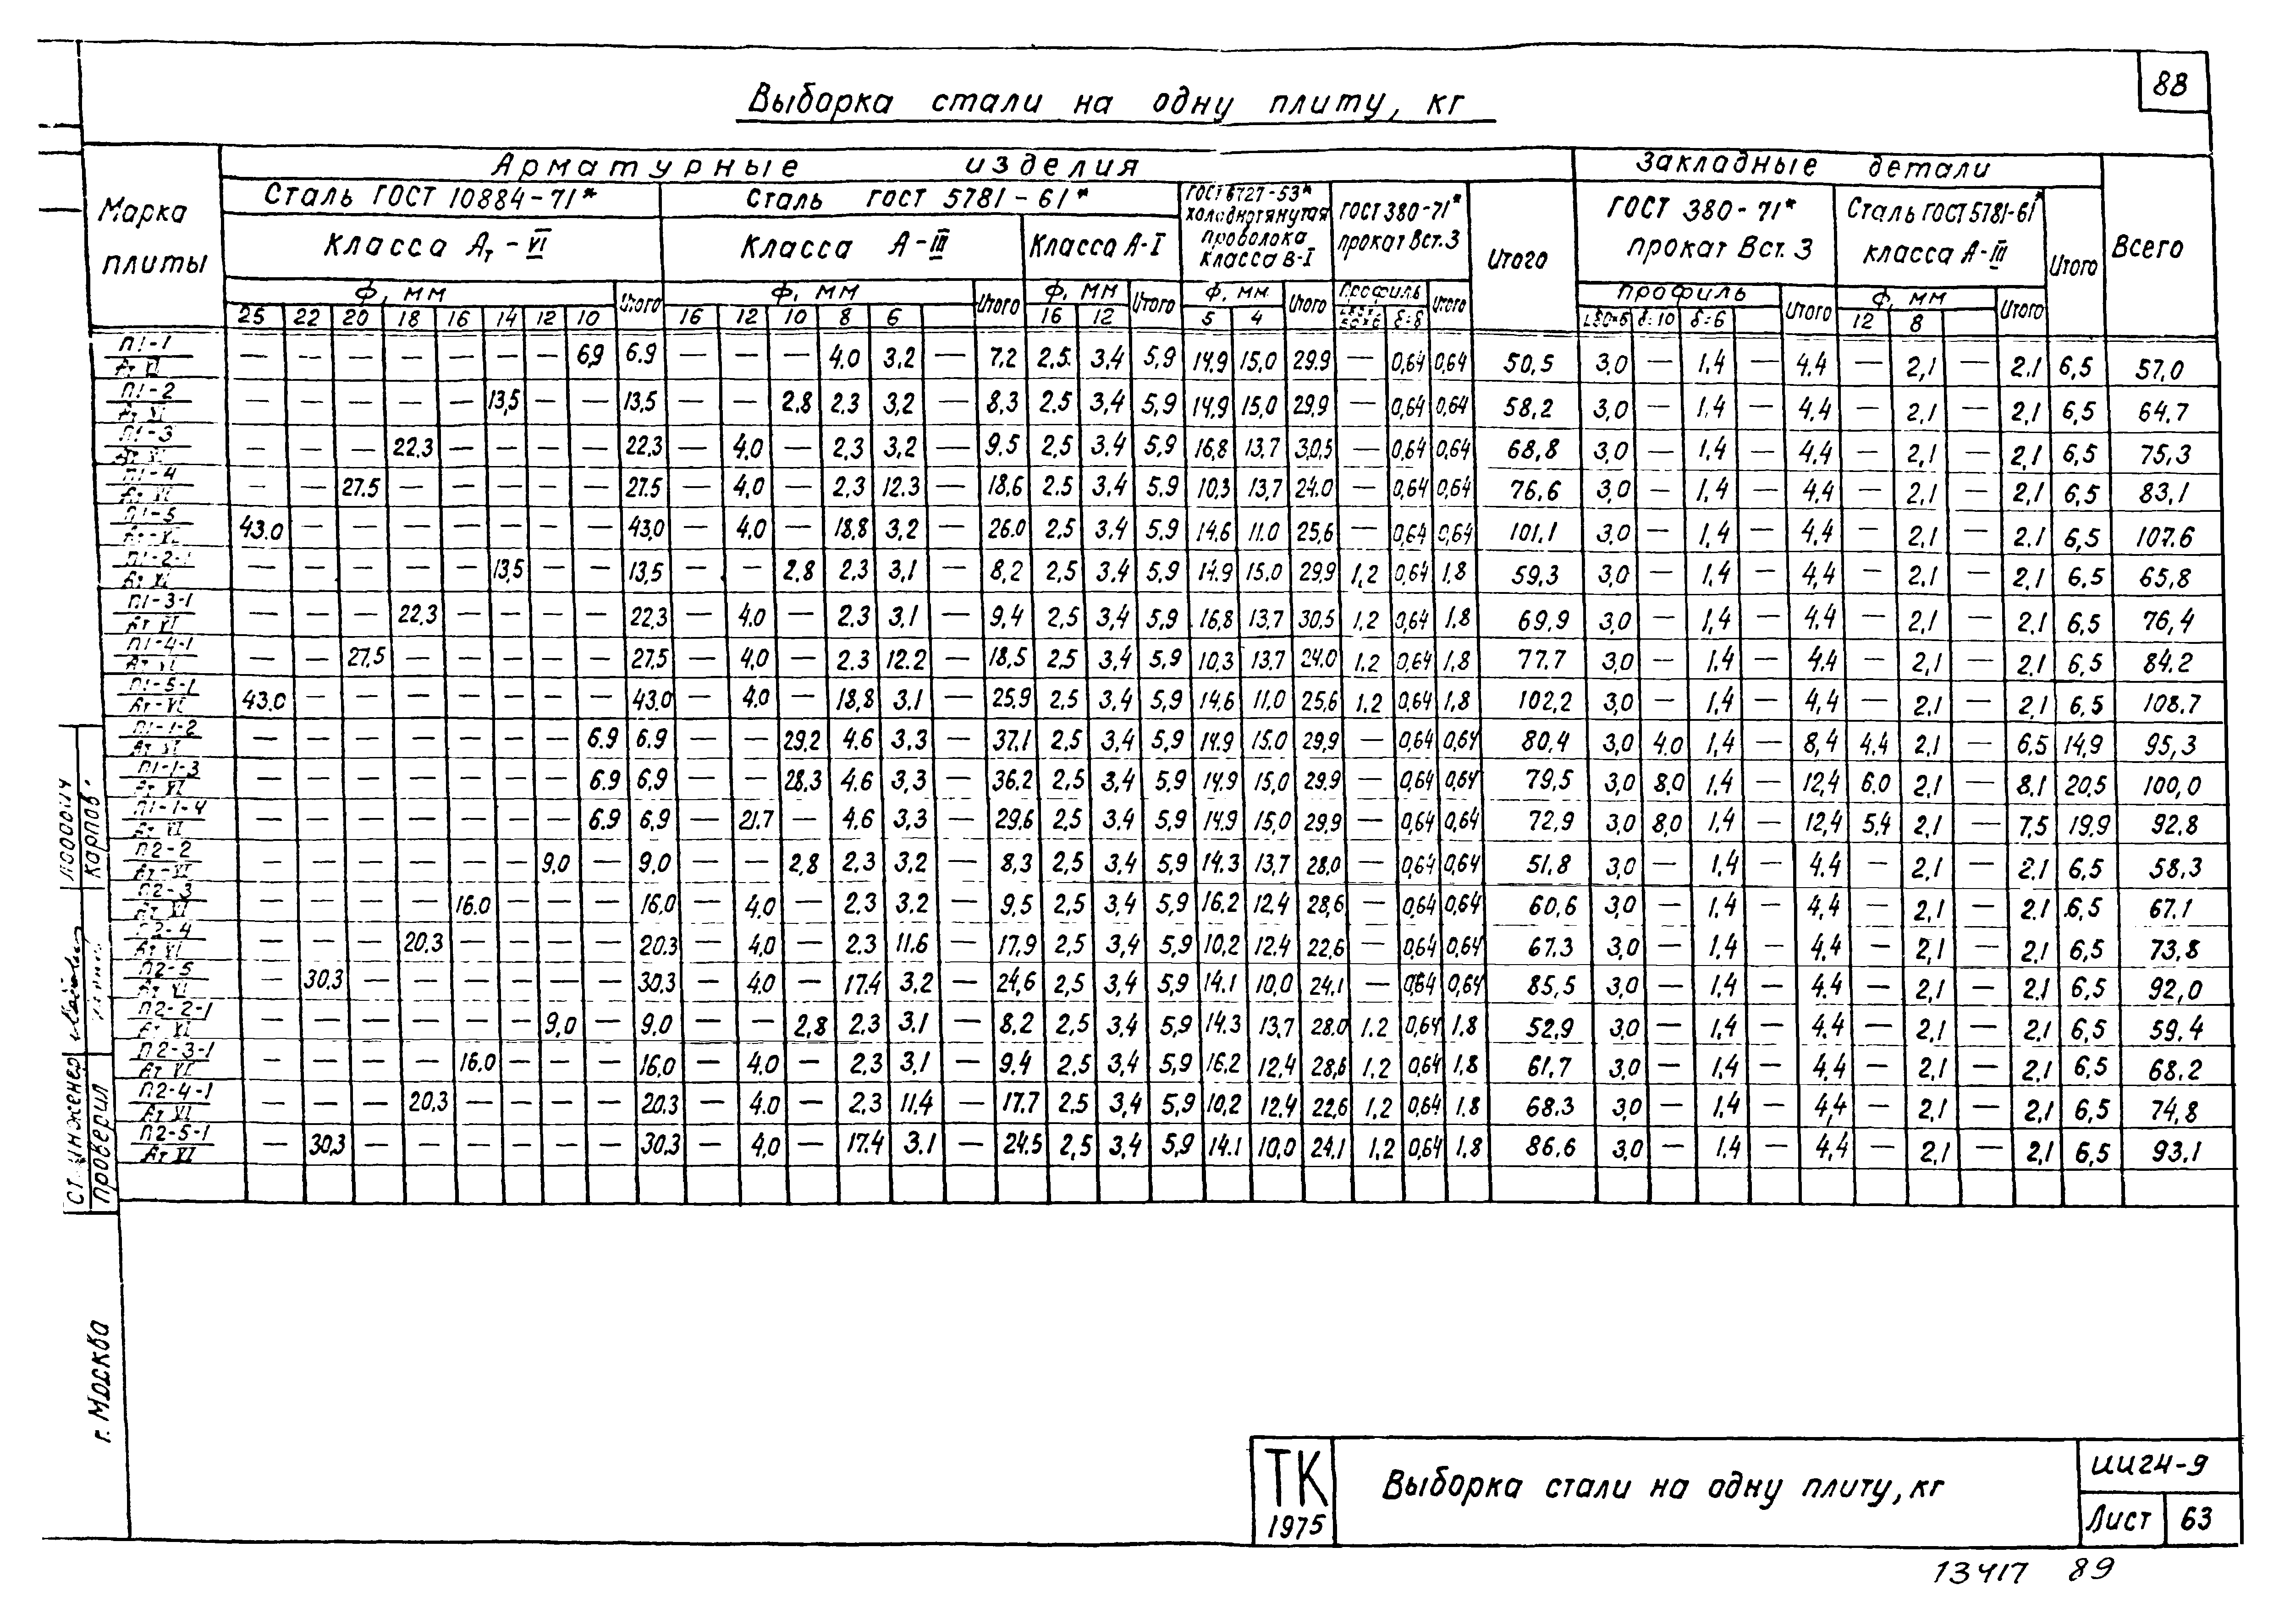 88
Выборка стали на одну плиту, кг
Марка плиты
Арматурные изделия
Закладные детали
Всего
Сталь ГОСТ 10884-71*
Сталь ГОСТ 5781-61*
ГОСТ 6727-53* холоднотянутая проволока класса В-I
ГОСТ 380-71* прокат Вст.3
Итого
ГОСТ 380-71* прокат Вст.3
Сталь ГОСТ 5781-61* класса А-III
Итого
Класса Ат-VI
Класса А-III
Класса А-I
Ф, мм Итого Ф, мм Итого Ф, мм Итого Ф, мм Итого Профиль Итого Профиль Итого Ф, мм Итого
25 22 20 18 16 14 12 10 16 12 10 8 6 16 12 5 4 δ=8 δ=10 δ=6 12 8
П1-1 Ат VI — — — — — — — 6,9 6.9 — — — 4.0 3.2 — 7.2 2.5 3.4 5.9 14.9 15.0 29.9 — 0,64 0,64 50,5 3,0 — 1.4 — 4.4 — 2,1 — 2.1 6,5 57.0
П1-2 Ат VI — — — — — 13,5 — — 13.5 — — 2.8 2.3 3.2 — 8,3 2.5 3.4 5,9 14.9 15.0 29,9 — 0,64 0,64 58.2 3,0 — 1.4 — 4.4 — 2,1 — 2,1 6,5 64.7
П1-3 Ат VI — — — 22,3 — — — — 22.3 — 4.0 — 2.3 3.2 — 9.5 2.5 3.4 5.9 16,8 13.7 30,5 — 0,64 0,64 68,8 3,0 — 1.4 — 4.4 — 2,1 — 2,1 6,5 75,3
П1-4 Ат VI — — 27.5 — — — — — 27.5 — 4,0 — 2.3 12.3 — 18,6 2.5 3.4 5.9 10,3 13,7 24.0 — 0,64 0,64 76.6 3,0 — 1,4 — 4.4 — 2,1 — 2,1 6,5 83,1
П1-5 Ат-VI 43.0 — — — — — — — 43,0 — 4.0 — 18,8 3,2 — 26.0 2.5 3.4 5.9 14.6 11.0 25,6 — 0,64 0,64 101.1 3,0 — 1,4 — 4.4 — 2,1 — 2.1 6,5 107.6
П1-2-1 Ат VI — — — — — 13,5 — — 13,5 — — 2.8 2.3 3,1 — 8,2 2,5 3.4 5,9 14.9 15,0 29,9 1,2 0,64 1,8 59,3 3,0 — 1,4 — 4,4 — 2,1 — 2,1 6,5 65,8
П1-3-1 Ат VI — — — 22,3 — — — — 22,3 — 4.0 — 2.3 3,1 — 9,4 2,5 3,4 5,9 16,8 13.7 30,5 1,2 0,64 1.8 69.9 3,0 — 1,4 — 4.4 — 2,1 — 2,1 6,5 76,4
П1-4-1 Ат VI — — 27,5 — — — — — 27,5 — 4,0 — 2.3 12.2 — 18,5 2,5 3,4 5,9 10,3 13.7 24.0 1.2 0,64 1,8 77.7 3,0 — 1.4 — 4.4 — 2,1 — 2,1 6,5 84.2
П1-5-1 Ат-VI 43.0 — — — — — — — 43.0 — 4.0 — 18,8 3.1 — 25,9 2,5 3,4 5,9 14,6 11,0 25,6 1.2 0,64 1,8 102,2 3,0 — 1,4 — 4,4 — 2,1 — 2,1 6,5 108.7
П1-1-2 Ат VI — — — — — — — 6.9 6.9 — — 29,2 4.6 3,3 — 37.1 2,5 3,4 5,9 14.9 15.0 29,9 — 0,64 0,64 80.4 3,0 4.0 1,4 — 8,4 4.4 2,1 — 6,5 14,9 95,3
П1-1-3 Ат VI — — — — — — — 6.9 6,9 — — 28,3 4.6 3,3 — 36.2 2,5 3,4 5,9 14.9 15,0 29.9 — 0,64 0,64 79,5 3,0 8,0 1,4 — 12,4 6.0 2,1 — 8.1 20,5 100,0
П1-1-4 Ат VI — — — — — — — 6.9 6,9 — 21.7 — 4.6 3,3 — 29.6 2,5 3.4 5,9 14.9 15,0 29,9 — 0,64 0,64 72,9 3,0 8,0 1,4 — 12,4 5,4 2,1 — 7,5 19,9 92.8
П2-2 Ат-VI — — — — — — 9,0 — 9,0 — — 2,8 2,3 3,2 — 8,3 2,5 3,4 5,9 14.3 13,7 28,0 — 0,64 0,64 51.8 3,0 — 1.4 — 4.4 — 2,1 — 2,1 6,5 58,3
П2-3 Ат VI — — — — 16.0 — — — 16,0 — 4,0 — 2.3 3.2 — 9,5 2,5 3,4 5,9 16,2 12,4 28,6 — 0,64 0,64 60,6 3,0 — 1,4 — 4,4 — 2,1 — 2,1 6,5 67.1
П2-4 Ат VI — — — 20,3 — — — — 20.3 — 4,0 — 2.3 11.6 — 17,9 2,5 3,4 5,9 10,2 12,4 22,6 — 0,64 0,64 67.3 3,0 — 1.4 — 4.4 — 2,1 — 2,1 6,5 73,8
П2-5 Ат VI — 30,3 — — — — — — 30,3 — 4,0 — 17.4 3,2 — 24,6 2,5 3,4 5,9 14.1 10,0 24,1 — 0,64 0,64 85,5 3,0 — 1,4 — 4.4 — 2,1 — 2,1 6,5 92,0
П2-2-1 Ат VI — — — — — — 9,0 — 9.0 — — 2,8 2.3 3.1 — 8.2 2,5 3,4 5,9 14.3 13,7 28.0 1.2 0,64 1,8 52,9 3,0 — 1.4 — 4.4 — 2,1 — 2,1 6,5 59.4
П2-3-1 Ат VI — — — — 16.0 — — — 16,0 — 4.0 — 2,3 3,1 — 9.4 2,5 3,4 5,9 16.2 12,4 28,6 1,2 0,64 1,8 61,7 3,0 — 1,4 — 4.4 — 2,1 — 2,1 6,5 68.2
П2-4-1 Ат VI — — — 20,3 — — — — 20.3 — 4.0 — 2,3 11.4 — 17.7 2,5 3,4 5,9 10,2 12,4 22,6 1,2 0,64 1.8 68.3 3,0 — 1,4 — 4,4 — 2,1 — 2,1 6,5 74,8
П2-5-1 Ат VI — 30,3 — — — — — — 30,3 — 4,0 — 17.4 3.1 — 24.5 2,5 3,4 5,9 14.1 10.0 24,1 1,2 0,64 1,8 86.6 3,0 — 1.4 — 4,4 — 2,1 — 2,1 6,5 93.1
Карпов
Ст. инженер
Проверил
г. Москва
ТК
1975
Выборка стали на одну плиту, кг
ИИ24-9
Лист 63
13417 89